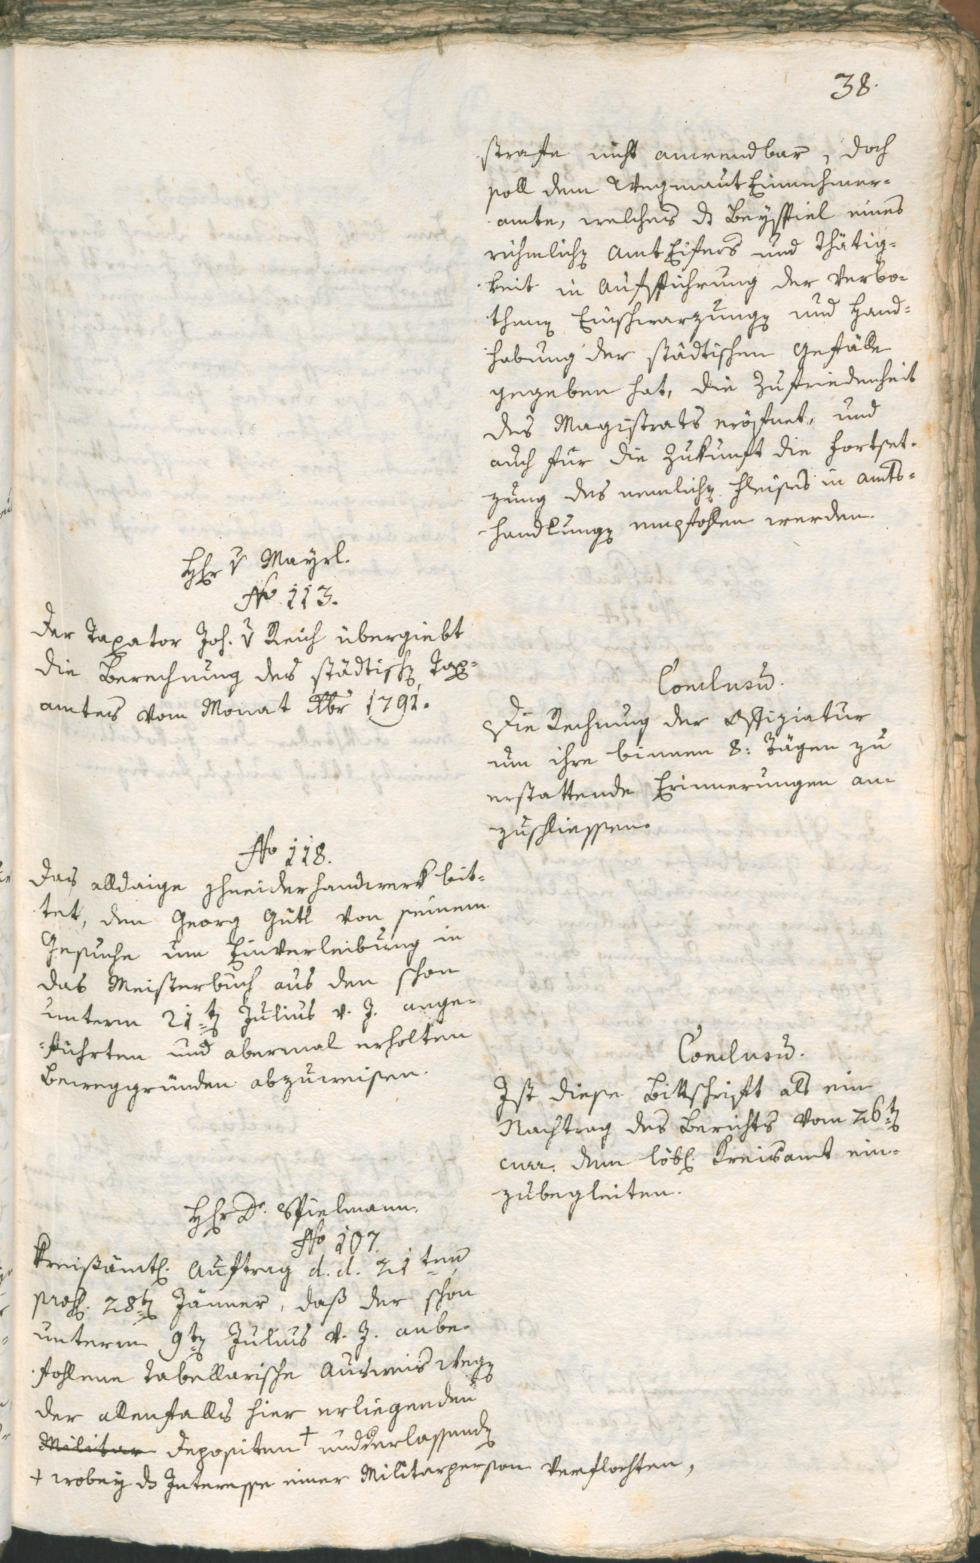 38.
strafe nicht anwendbar, doch
soll dem Wegmaut Einnehmer-
amte, welches ds Beyspiel eines
rühmlichen Amt Eifers und Thätig-
keit in Aufführung der verbo-
thenen Einschwarzungen und Hand-
habung der städtischen Gefälle
gegeben hat, die Zufriedenheit
des Magistrats eröfnet, und
auch für die Zukunft die Fortset-
zung des nemlichen Fleißes in Amts-
handlungen empfohlen werden.
Hhr v Mayrl.
No 113.
Der Taxator Joh. v Reich übergiebt
die Berechnung des städtischen Tax-
amtes vom Monat Xbr 1791.
Conclusum.
Die Rechnung der Offiziatur
um ihre binnen 8: Tägen zu
erstattende Erinnerungen an-
zuschliessen.
No 118.
Das alldaige Schneiderhandwerk bit-
tet, den Georg Gütl von seinem
Gesuche um Einverleibung in
das Meisterbuch aus den schon
unterm 21ten Julius v. J. ange-
führten und abermal erholten
Beweggründen abzuweisen.
Conclusum.
Ist diese Bittschrift als ein
Nachtrag des Berichts vom 26ten
curr. dem löbl. Kreisamt ein-
zubegleiten.
Hhr Dr. Spielmann.
No 107
Kreißämtl. Auftrag d. d. 21ten
praes. 28ten Jänner, daß der schon
unterm 9ten Julius v. J. anbe-
fohlene tabellarische Ausweis wegen
der allenfalls hier erliegenden
Militar Depositen † und Verlassenden
† wobey ds Interesse einer Militarperson verflochten,